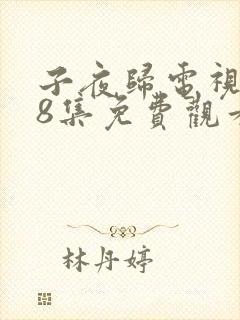 子夜歸電視
8集免費觀看
林丹婷